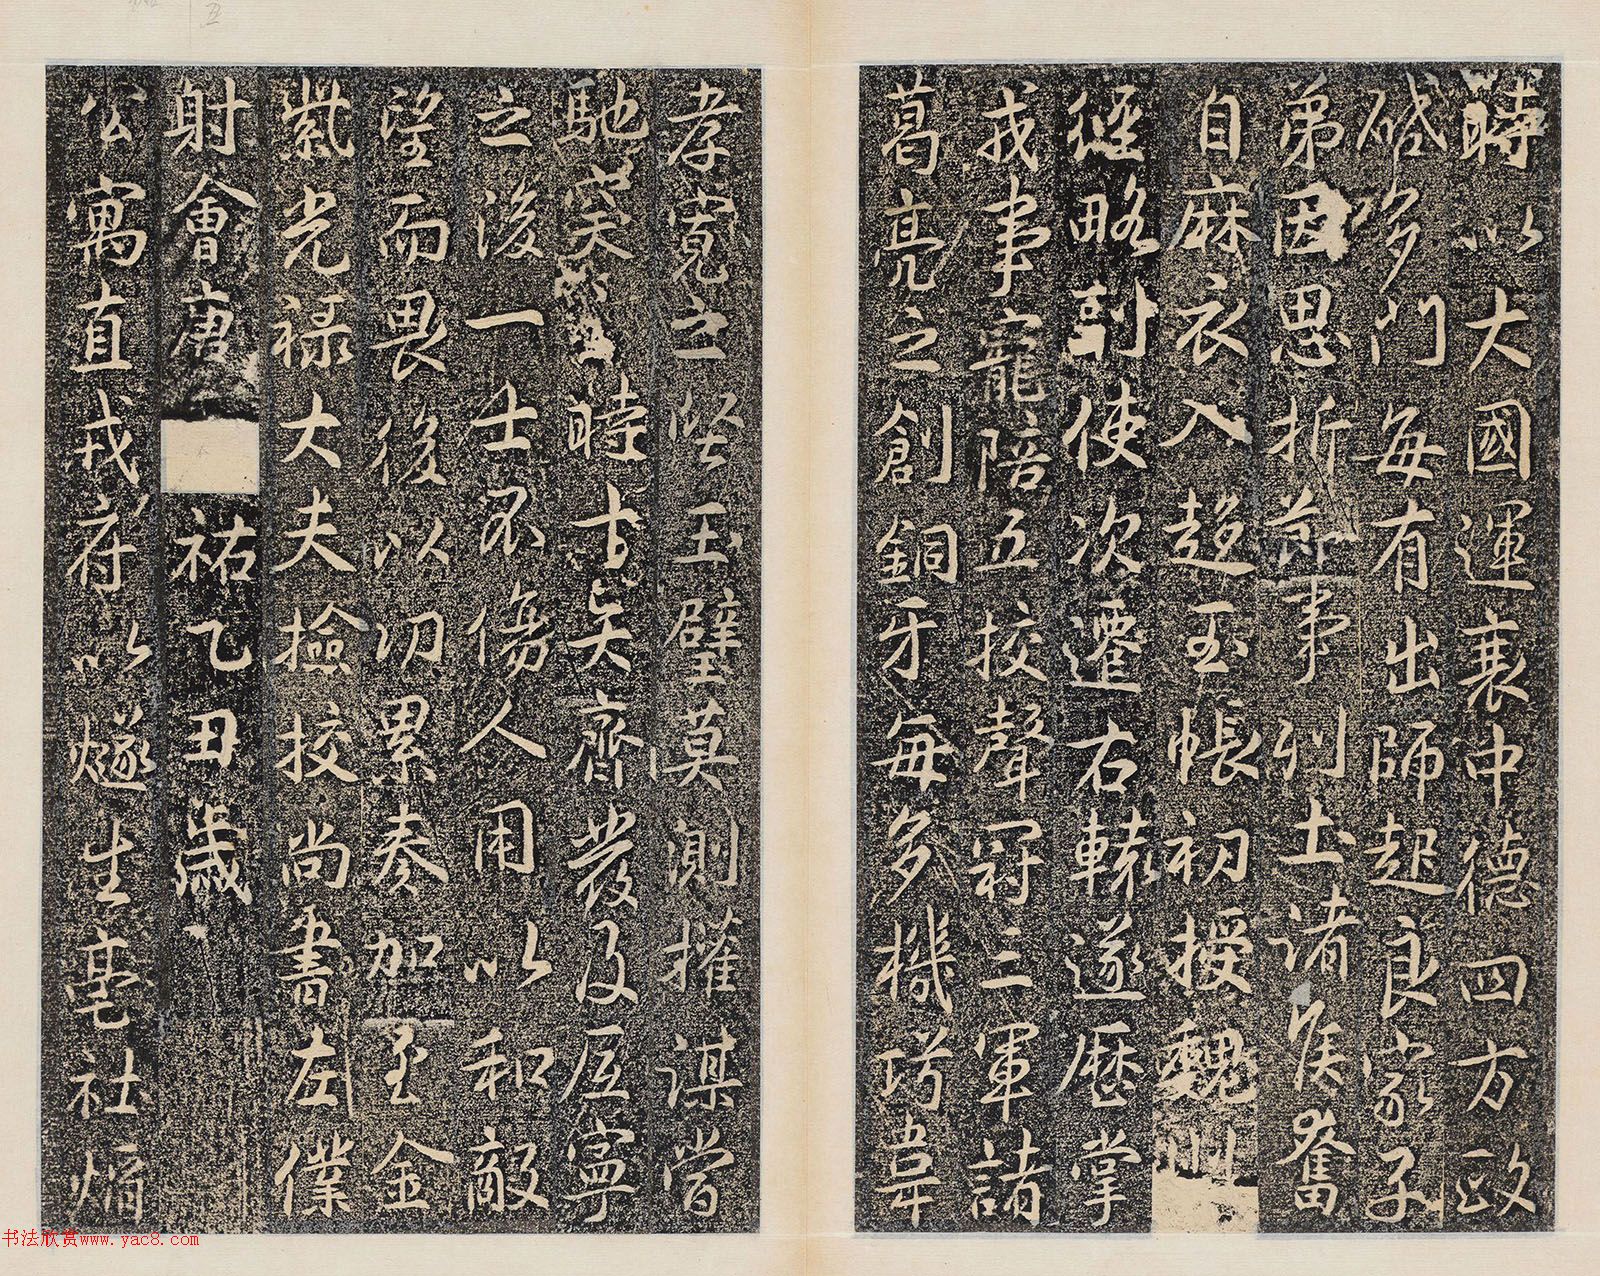 時以大國運衰中德四方政
磋多門每有出師起良家子
弟因思折節事列土諸侯奮
自麻衣入趍玉帳初授魏州
經略副使次遷右轅遂歷掌
戎事寵陪五校聲冠三軍諸
葛亮之創銅牙每多機巧韋
孝寬之堅玉壁莫測摧謀嘗
馳突 時吉矣齊發及屆寧
之後一士不傷人用以和敵
望而畏後以功累奏加至金
紫光祿大夫撿挍尚書左僕
射會唐 祐乙丑歲
公寓直戎府以燧生亳社熖
书法欣赏www.yac8.com